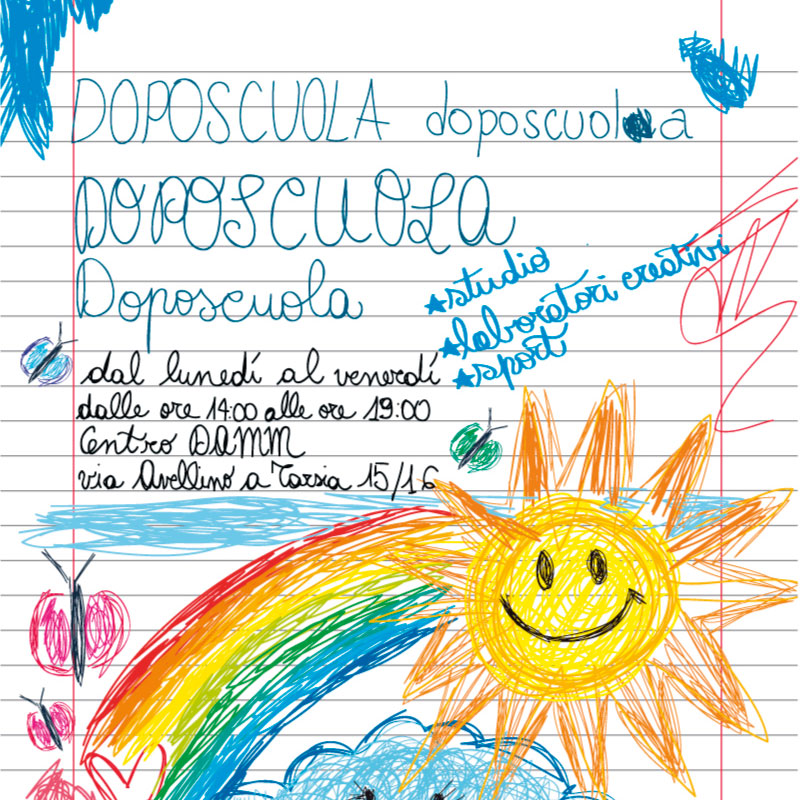 DOPOSCUOLA doposcuola
DOPOSCUOLA
Doposcuola
★studio
★laboratori creativi
★sport
dal lunedí al venerdí
dalle ore 14:00 alle ore 19:00
Centro DAMM
via Avellino a Tarsia 15/16